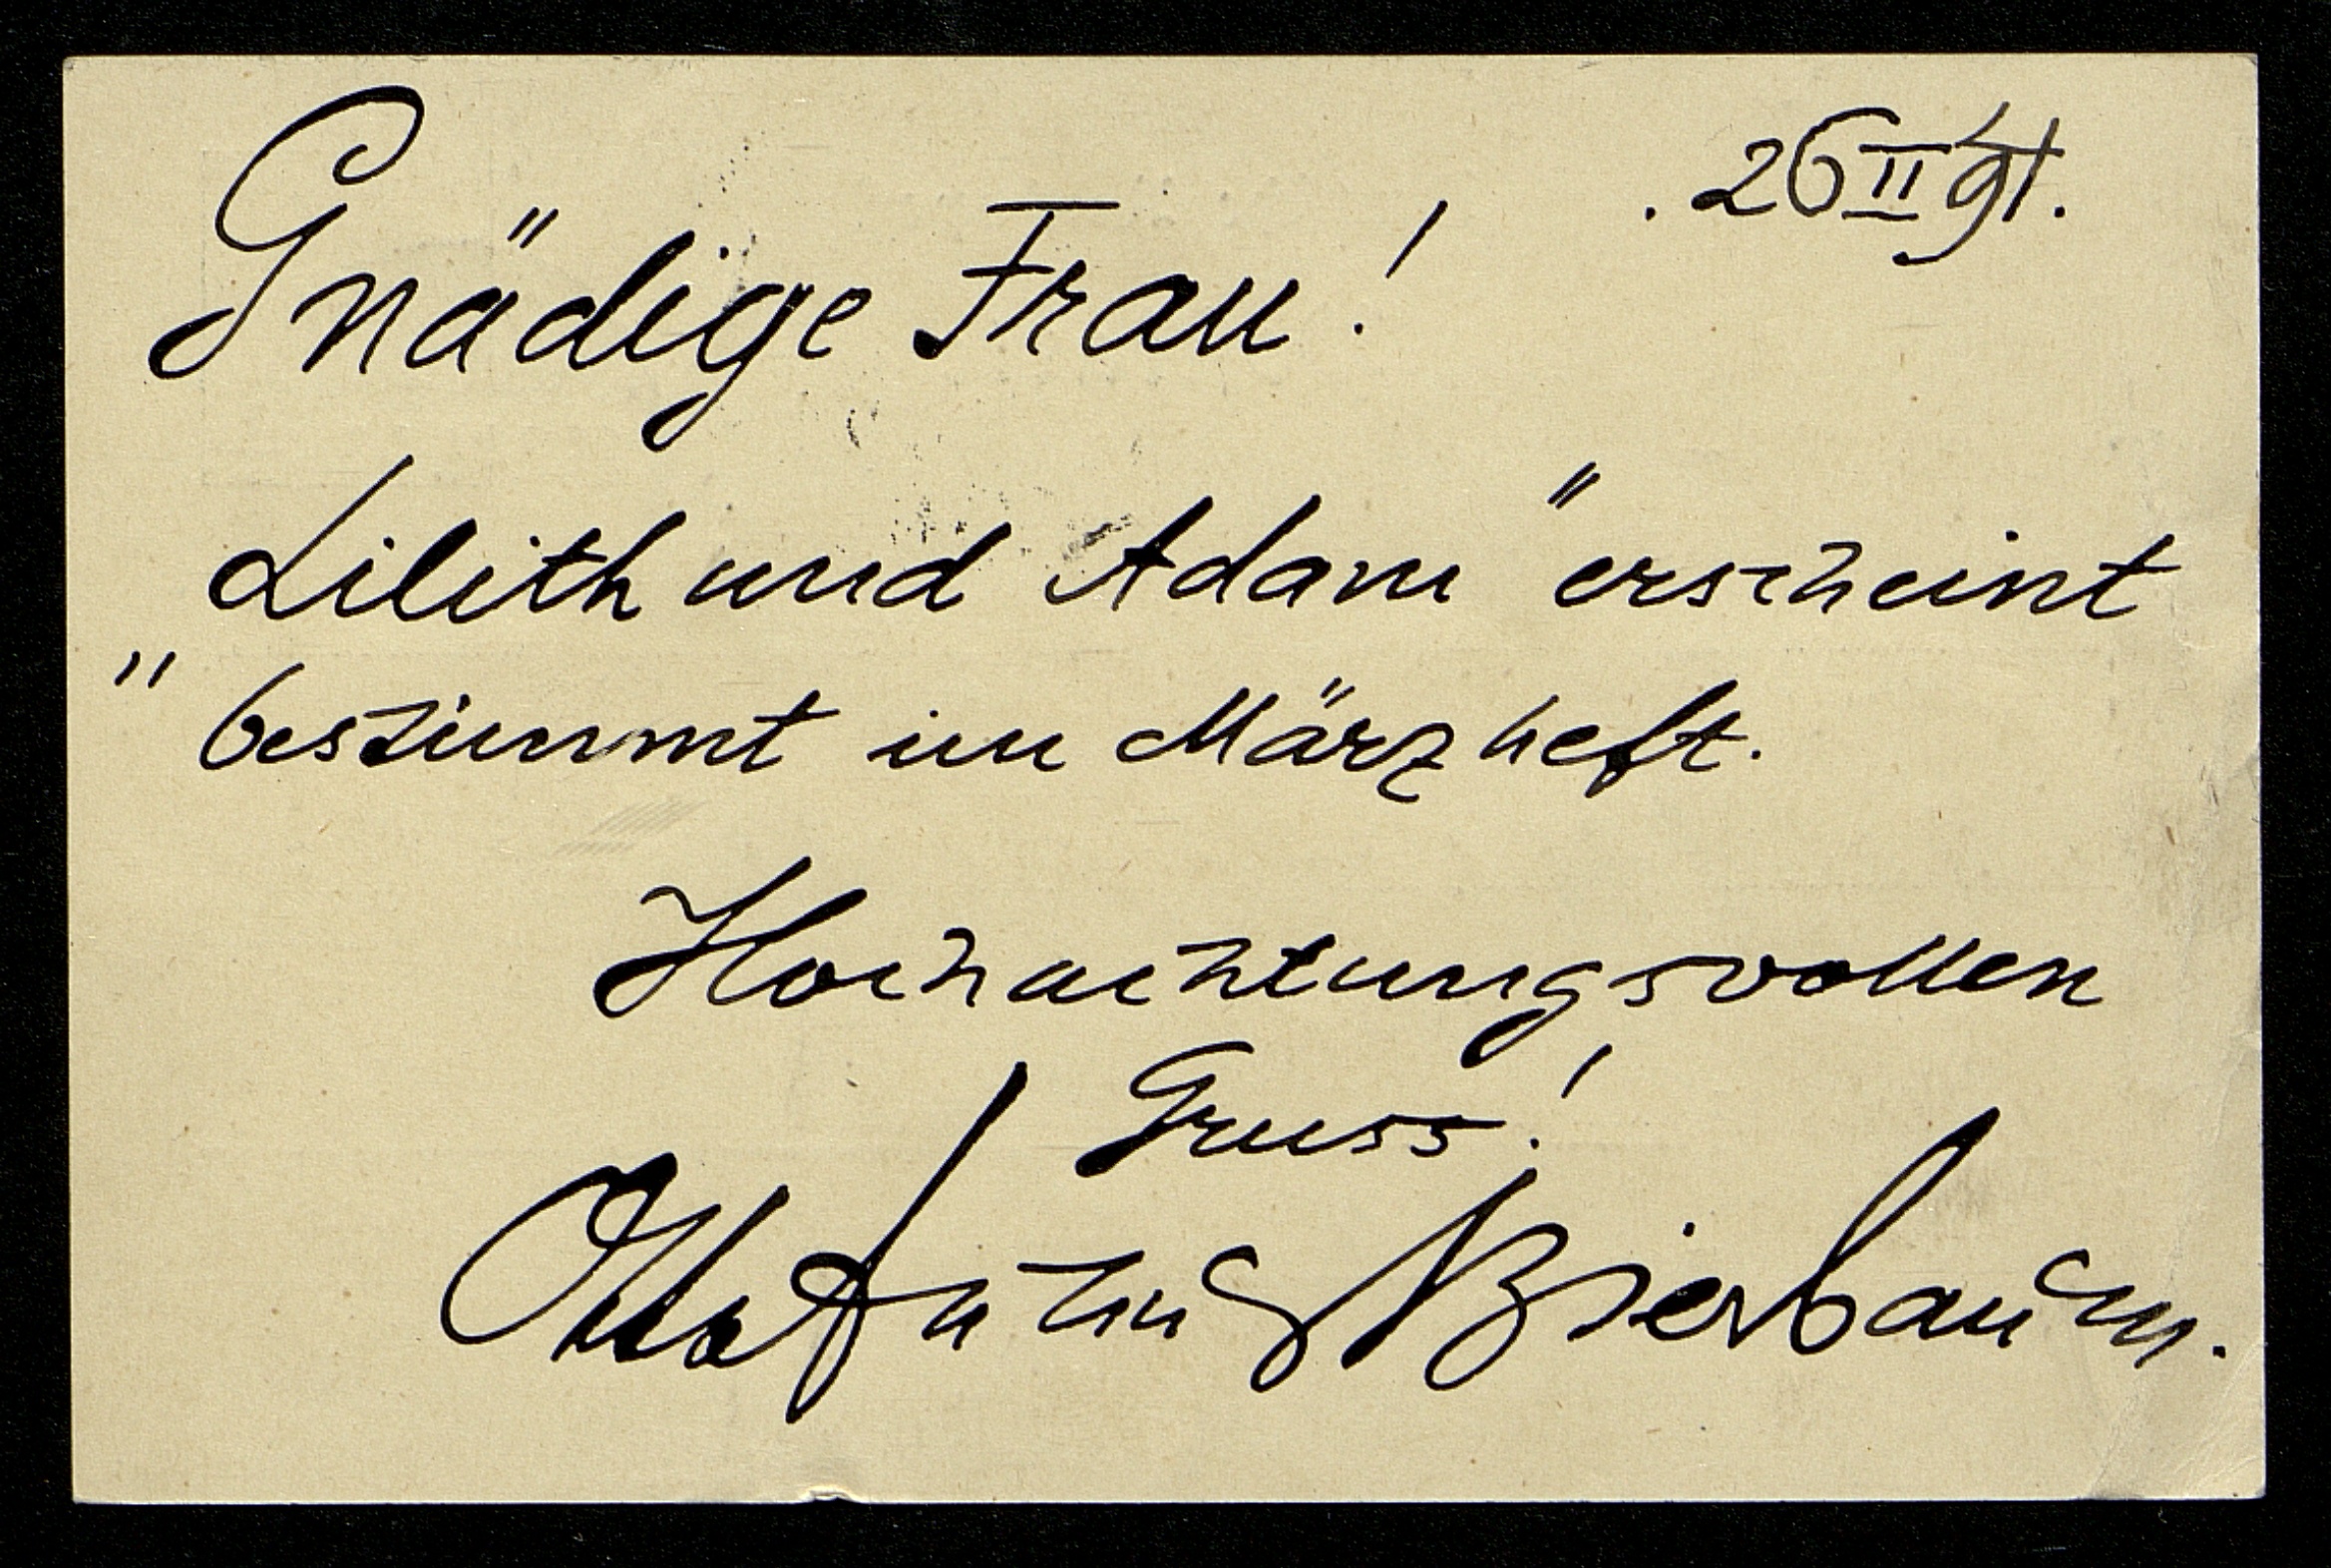 . 26 II 91.
Gnädige Frau!
Lilith und Adam" erscheint
" bestimmt im Märzheft.
Hochachtungsvollen
Gruss!
Otto Julius Bierbaum.